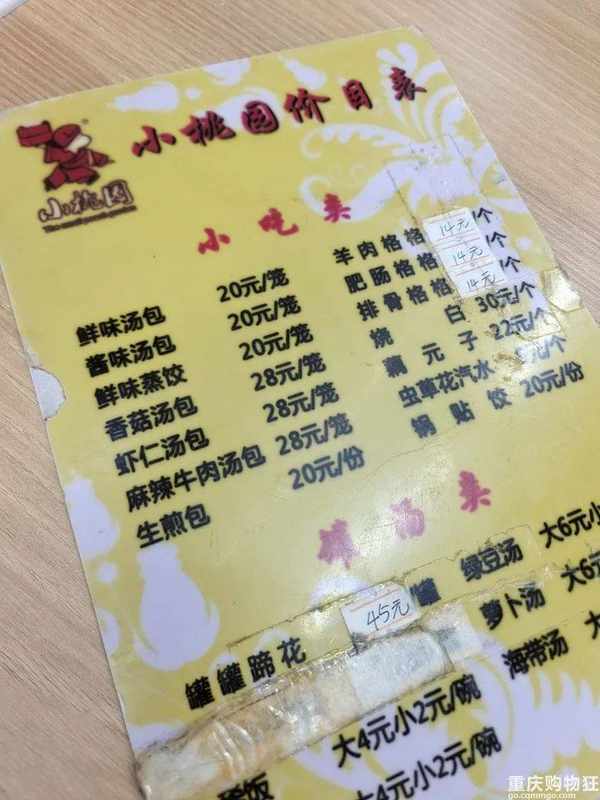 小桃园价目表
小桃园
小吃类
鲜味汤包 20元/笼 羊肉格格 14元/个
酱味汤包 20元/笼 肥肠格格 14元/个
鲜味蒸饺 20元/笼 排骨格格 14元/个
香菇汤包 28元/笼 烧白 30元/个
虾仁汤包 28元/笼 藕元子 22元/个
麻辣牛肉汤包 28元/笼 虫草花汽水 元/个
生煎包 20元/份 锅贴饺 20元/份
汤类
罐罐蹄花 45元/罐 绿豆汤 大6元小
萝卜汤 大6元
海带汤 大
大4元小2元/碗
稀饭 大4元小2元/碗
重庆购物狂
go.cqmmgo.com